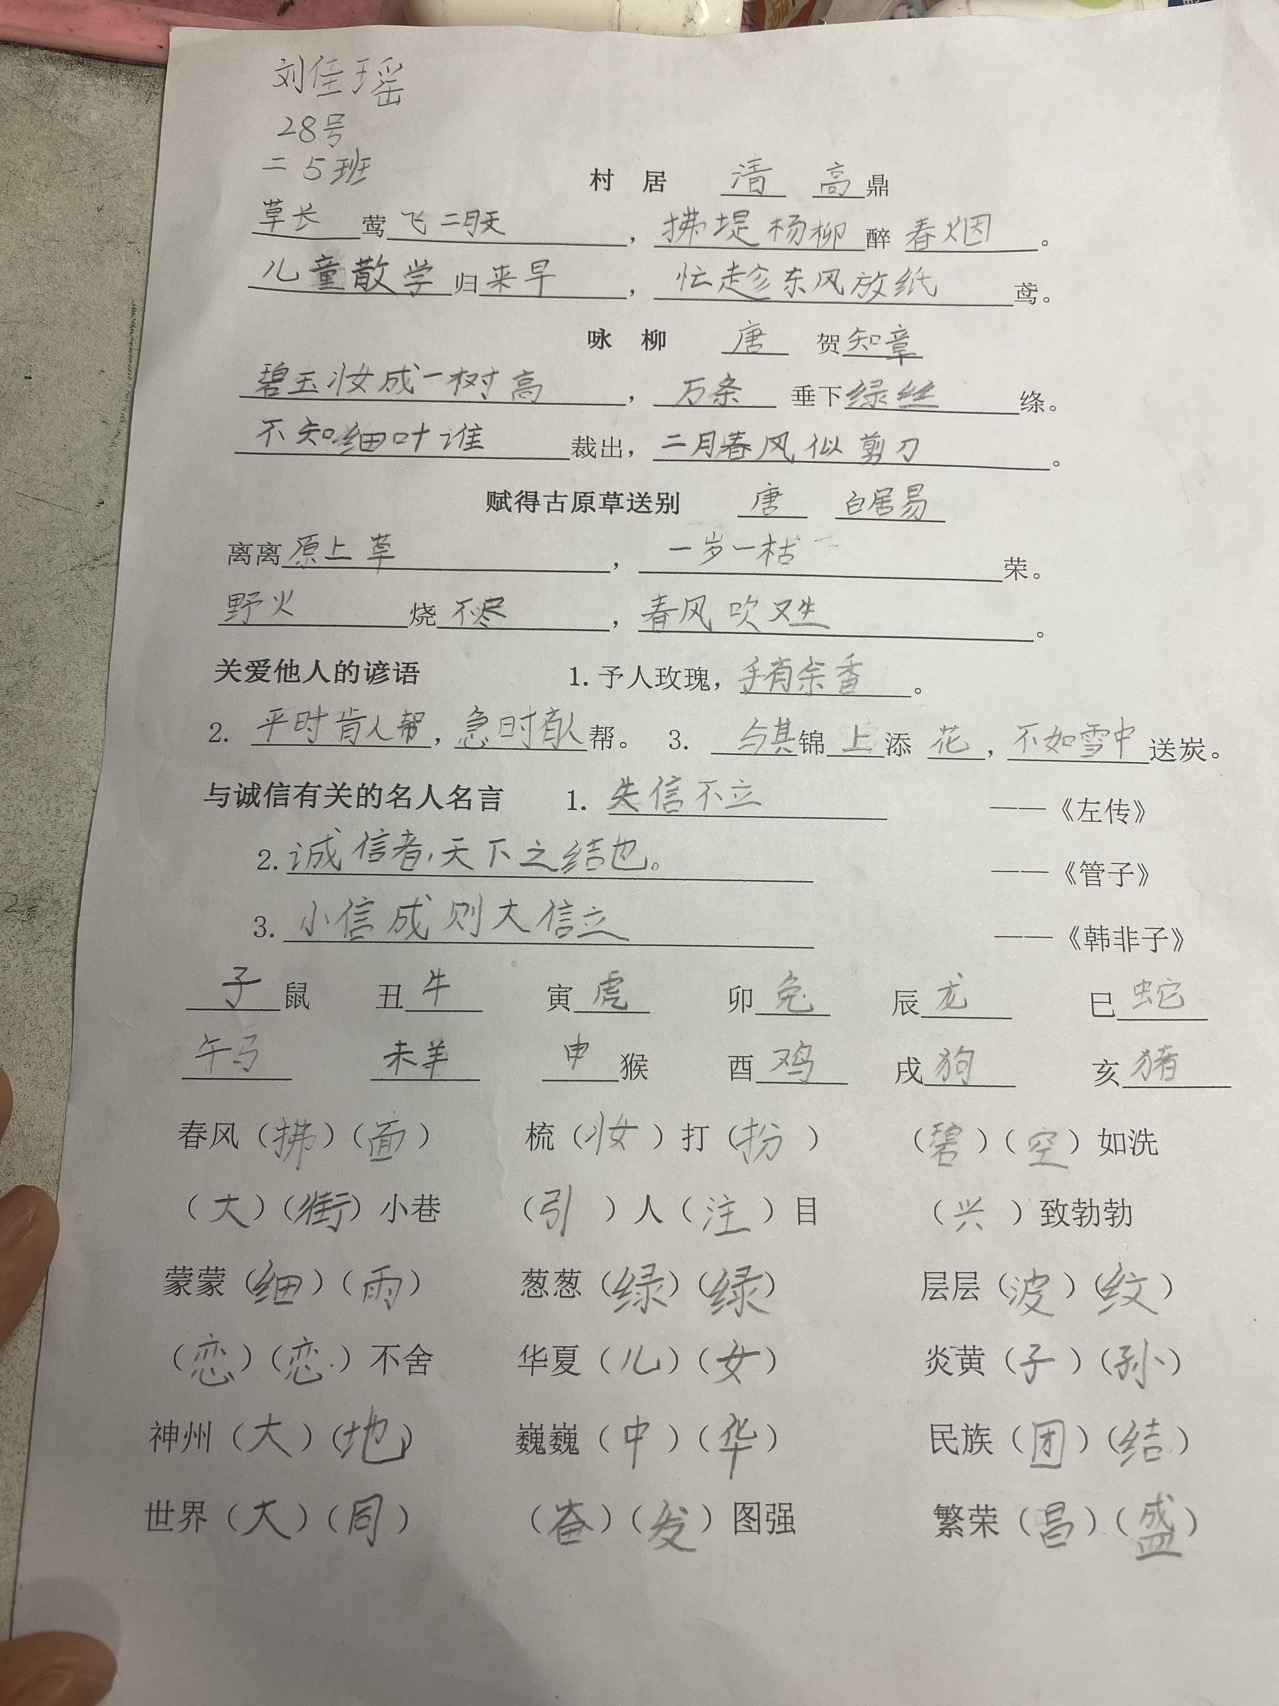 刘佳瑶
28号
二5班
村 居 清 高鼎
草长莺飞二月天，拂堤杨柳醉春烟。
儿童散学归来早，忙趁东风放纸鸢。
咏 柳 唐 贺知章
碧玉妆成一树高，万条垂下绿丝绦。
不知细叶谁裁出，二月春风似剪刀。
赋得古原草送别 唐 白居易
离离原上草，一岁一枯一荣。
野火烧不尽，春风吹又生。
关爱他人的谚语 1.予人玫瑰，手有余香。
2. 平时肯人帮，急时有人帮。 3. 与其锦上添花，不如雪中送炭。
与诚信有关的名人名言 1. 失信不立 ——《左传》
2.诚信者,天下之结也。 ——《管子》
3. 小信成则大信立 ——《韩非子》
子鼠 丑牛 寅虎 卯兔 辰龙 巳蛇
午马 未羊 申猴 酉鸡 戌狗 亥猪
春风（拂）（面） 梳（妆）打（扮） （碧）（空）如洗
（大）（街）小巷 （引）人（注）目 （兴）致勃勃
蒙蒙（细）（雨） 葱葱（绿）（绿） 层层（波）（纹）
（恋）（恋）不舍 华夏（儿）（女） 炎黄（子）（孙）
神州（大）（地） 巍巍（中）（华） 民族（团）（结）
世界（大）（同） （奋）（发）图强 繁荣（昌）（盛）